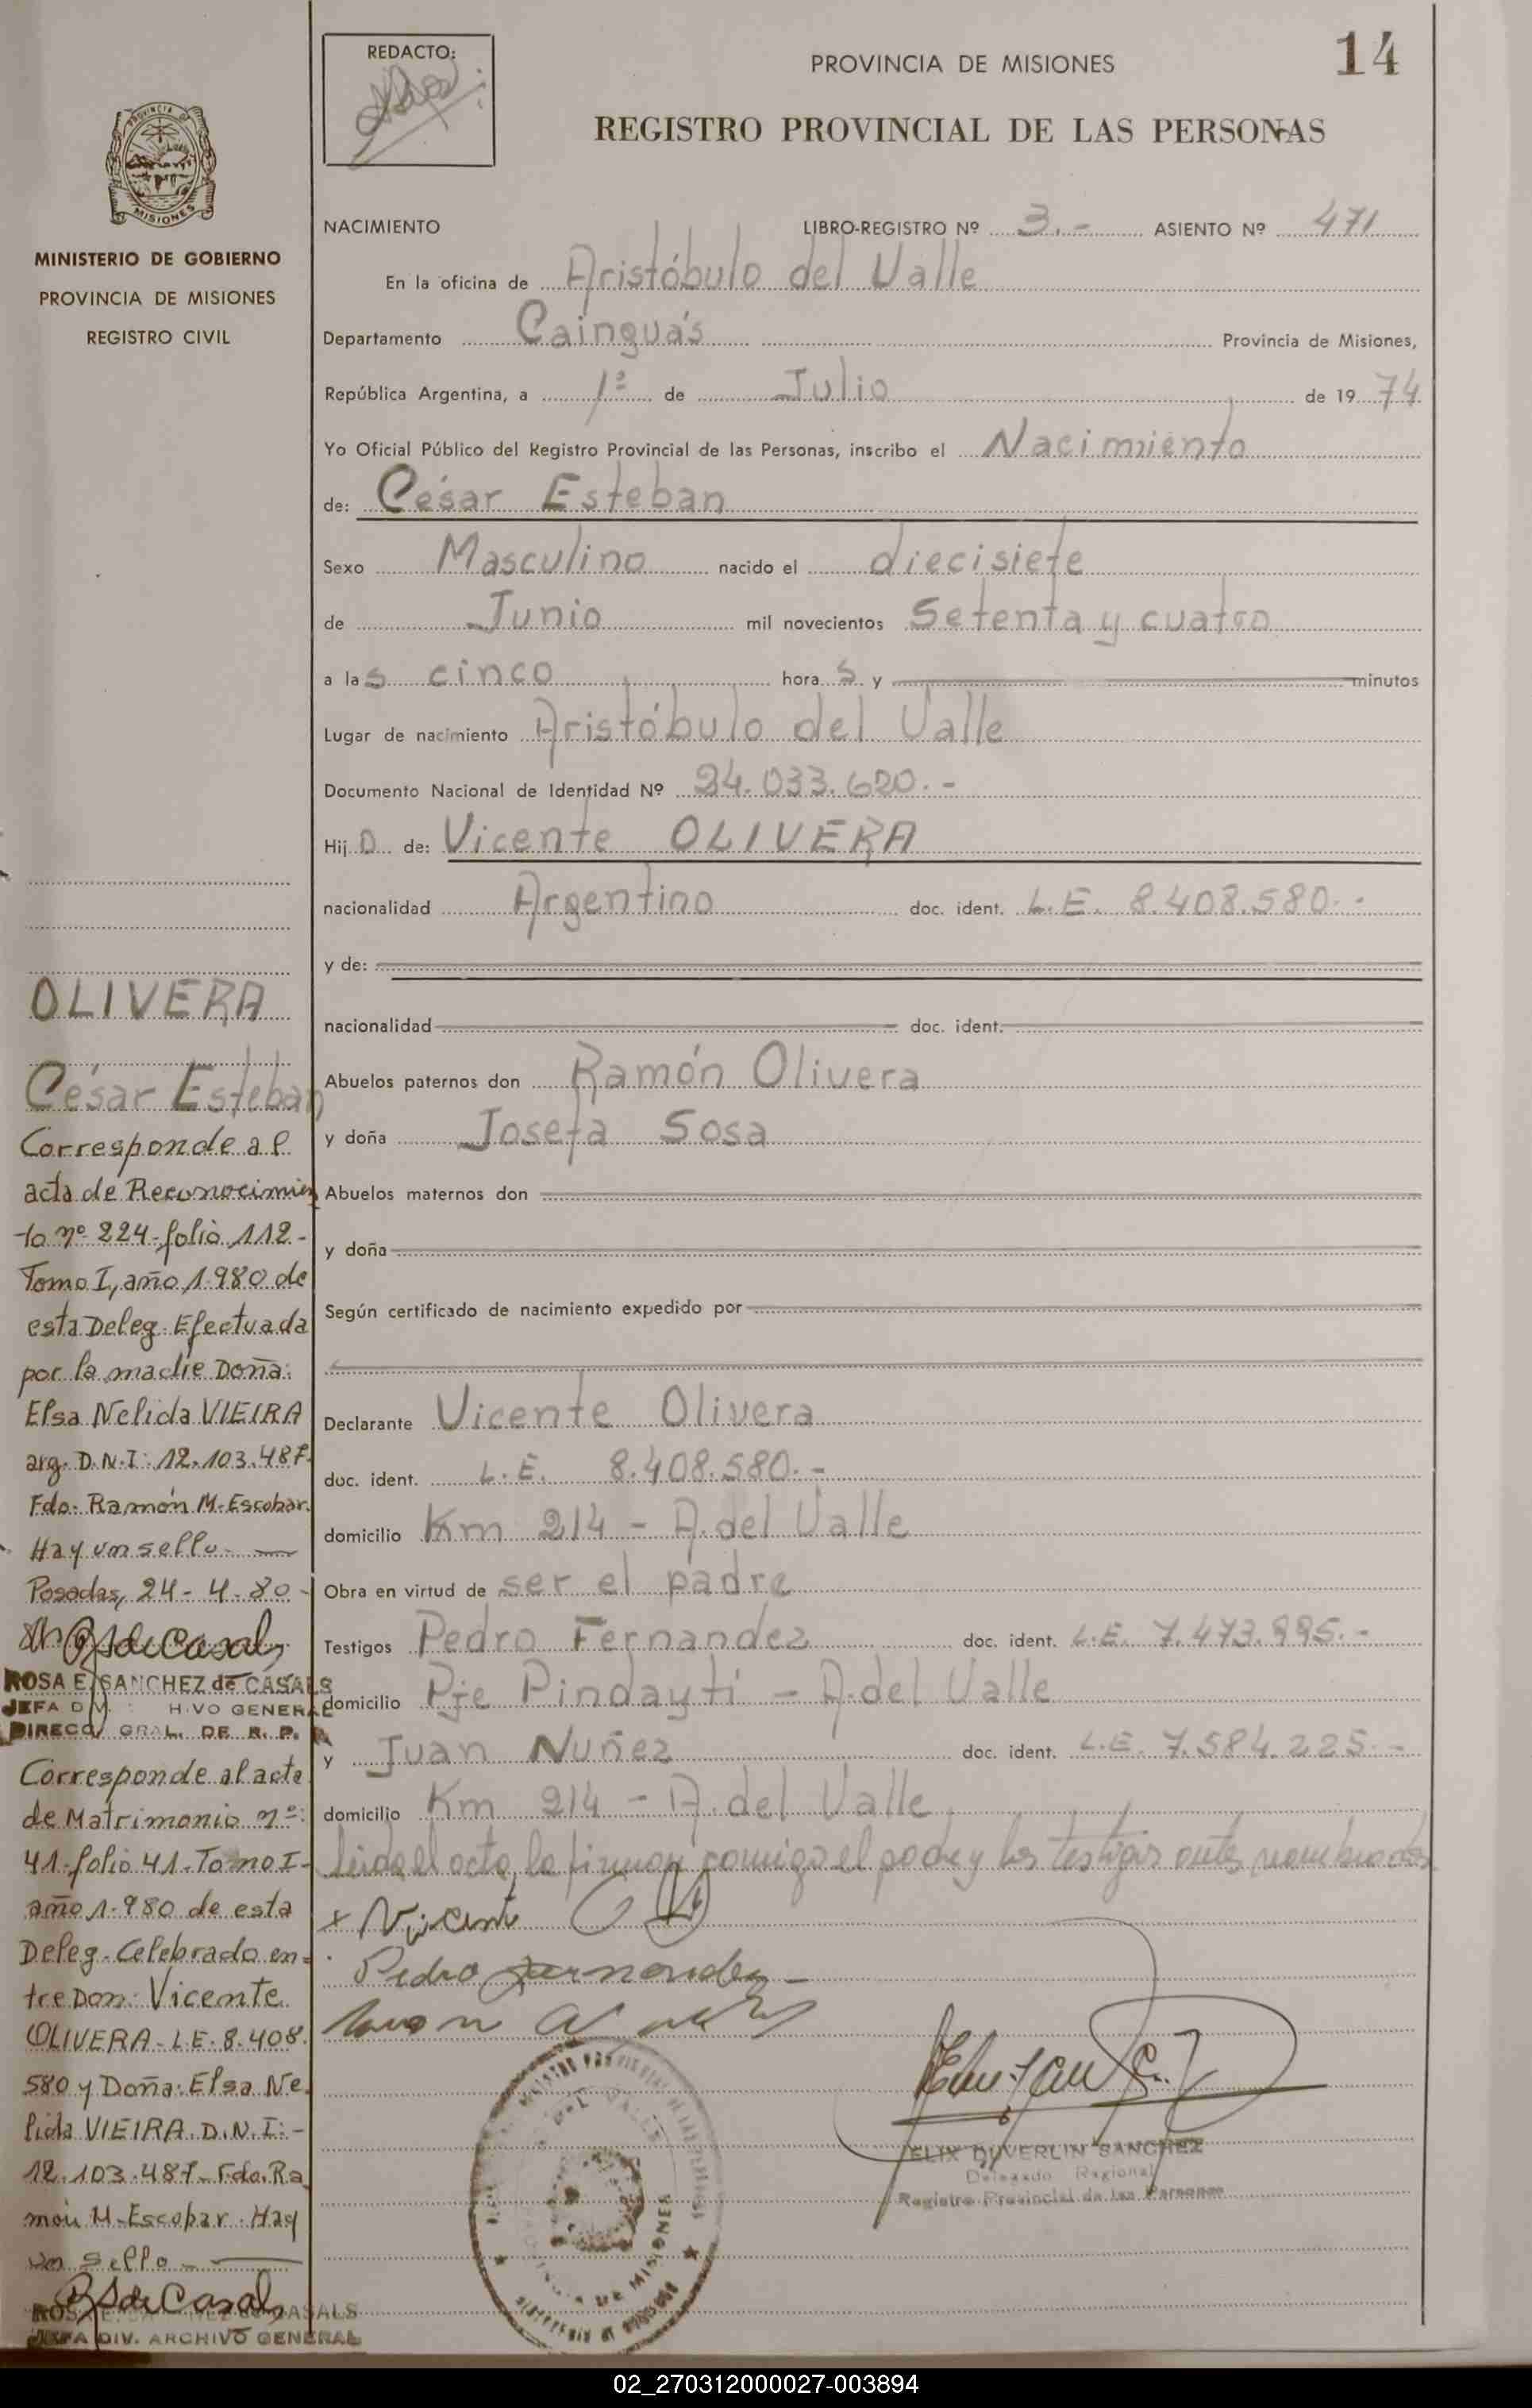 14
REDACTO:
PROVINCIA DE MISIONES
REGISTRO PROVINCIAL DE LAS PERSONAS
PROVINCIA DE
MISIONES
MINISTERIO DE GOBIERNO
PROVINCIA DE MISIONES
REGISTRO CIVIL
NACIMIENTO LIBRO-REGISTRO Nº 3.- ASIENTO Nº 471
En la oficina de Aristóbulo del Valle
Departamento Cainguás Provincia de Misiones,
República Argentina, a 1º de Julio de 1974
Yo Oficial Público del Registro Provincial de las Personas, inscribo el Nacimiento
de: César Esteban
Sexo Masculino nacido el diecisiete
de Junio mil novecientos Setenta y cuatro
a las cinco horas y minutos
Lugar de nacimiento Aristóbulo del Valle
Documento Nacional de Identidad Nº 24.033.620.-
Hijo de: Vicente OLIVERA
nacionalidad Argentino doc. ident. L.E. 8.408.580.-
y de:
nacionalidad doc. ident.
Abuelos paternos don Ramón Olivera
y doña Josefa Sosa
Abuelos maternos don
y doña
Según certificado de nacimiento expedido por
Declarante Vicente Olivera
doc. ident. L.E. 8.408.580.-
domicilio Km 214 - A. del Valle
Obra en virtud de ser el padre
Testigos Pedro Fernandez doc. ident. L.E. 7.473.995.-
domicilio Pje Pindayti - A. del Valle
y Juan Nuñez doc. ident. L.E. 7.584.225.-
domicilio Km 214 - A. del Valle
Leida el acta, la firman comigo el padre y los testigos antes nombrados
+ Vicente
Pedro Fernandez
FELIX DUVERLIN SANCHEZ
Delegado Regional
Registro Provincial de las Personas
DEL VALLE
DE MISIONES
OLIVERA
César Esteban
Corresponde al
acta de Reconocimien
to nº 224-folio 112-
Tomo I, año 1.980 de
esta Deleg. Efectuada
por la madre Doña:
Elsa Nelida VIEIRA
arg. D.N.I: 12.103.487.
Fdo. Ramón M. Escobar.
Hay un sello
Posadas, 24-4-80-
ROSA E. SANCHEZ de CASALS
JEFA DIV. ARCHIVO GENERAL
DIRECC. GRAL. DE R. P.
Corresponde al acta
de Matrimonio nº:
41-folio 41-Tomo I-
año 1.980 de esta
Deleg. Celebrado en-
tre Don: Vicente
OLIVERA-L.E. 8.408.
580 y Doña: Elsa Ne
lida VIEIRA. D.N.I:-
12.103.487-Fdo. Ra
món M-Escobar. Hay
un sello-
JEFA DIV. ARCHIVO GENERAL
02_270312000027-003894